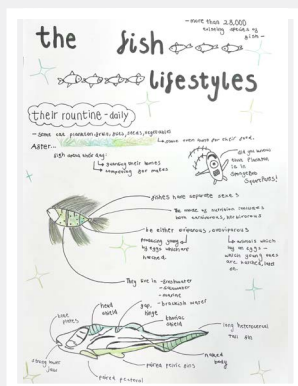 the fish
- more than 28,000
existing species of
fish -
lifestyles
their rountine - daily
- some eat plankton, fruit, nuts, seeds, vegetables
↳ some even hunt for their food.
After...
fish spend their day:
↳ guarding their homes
↳ competing for mates
did you know
that Plankton
is in
Spongebob
SquarePants!
fishes have separate sexes
The mode of nutrition includes
both carnivorous, herbivorous
by either viviparous, oviparous
producing young
by eggs which are
hatched
↳ animals which
lay on eggs -
which young ones
are hatched, later
on.
They live in - freshwater
- saltwater
- marine
- brackish water
head
shield
gap,
hinge
thoracic
shield
long heterocercal
tail fin
tooth
plates
strong lower
jaw
naked
body
paired pelvic fins
paired pectoral